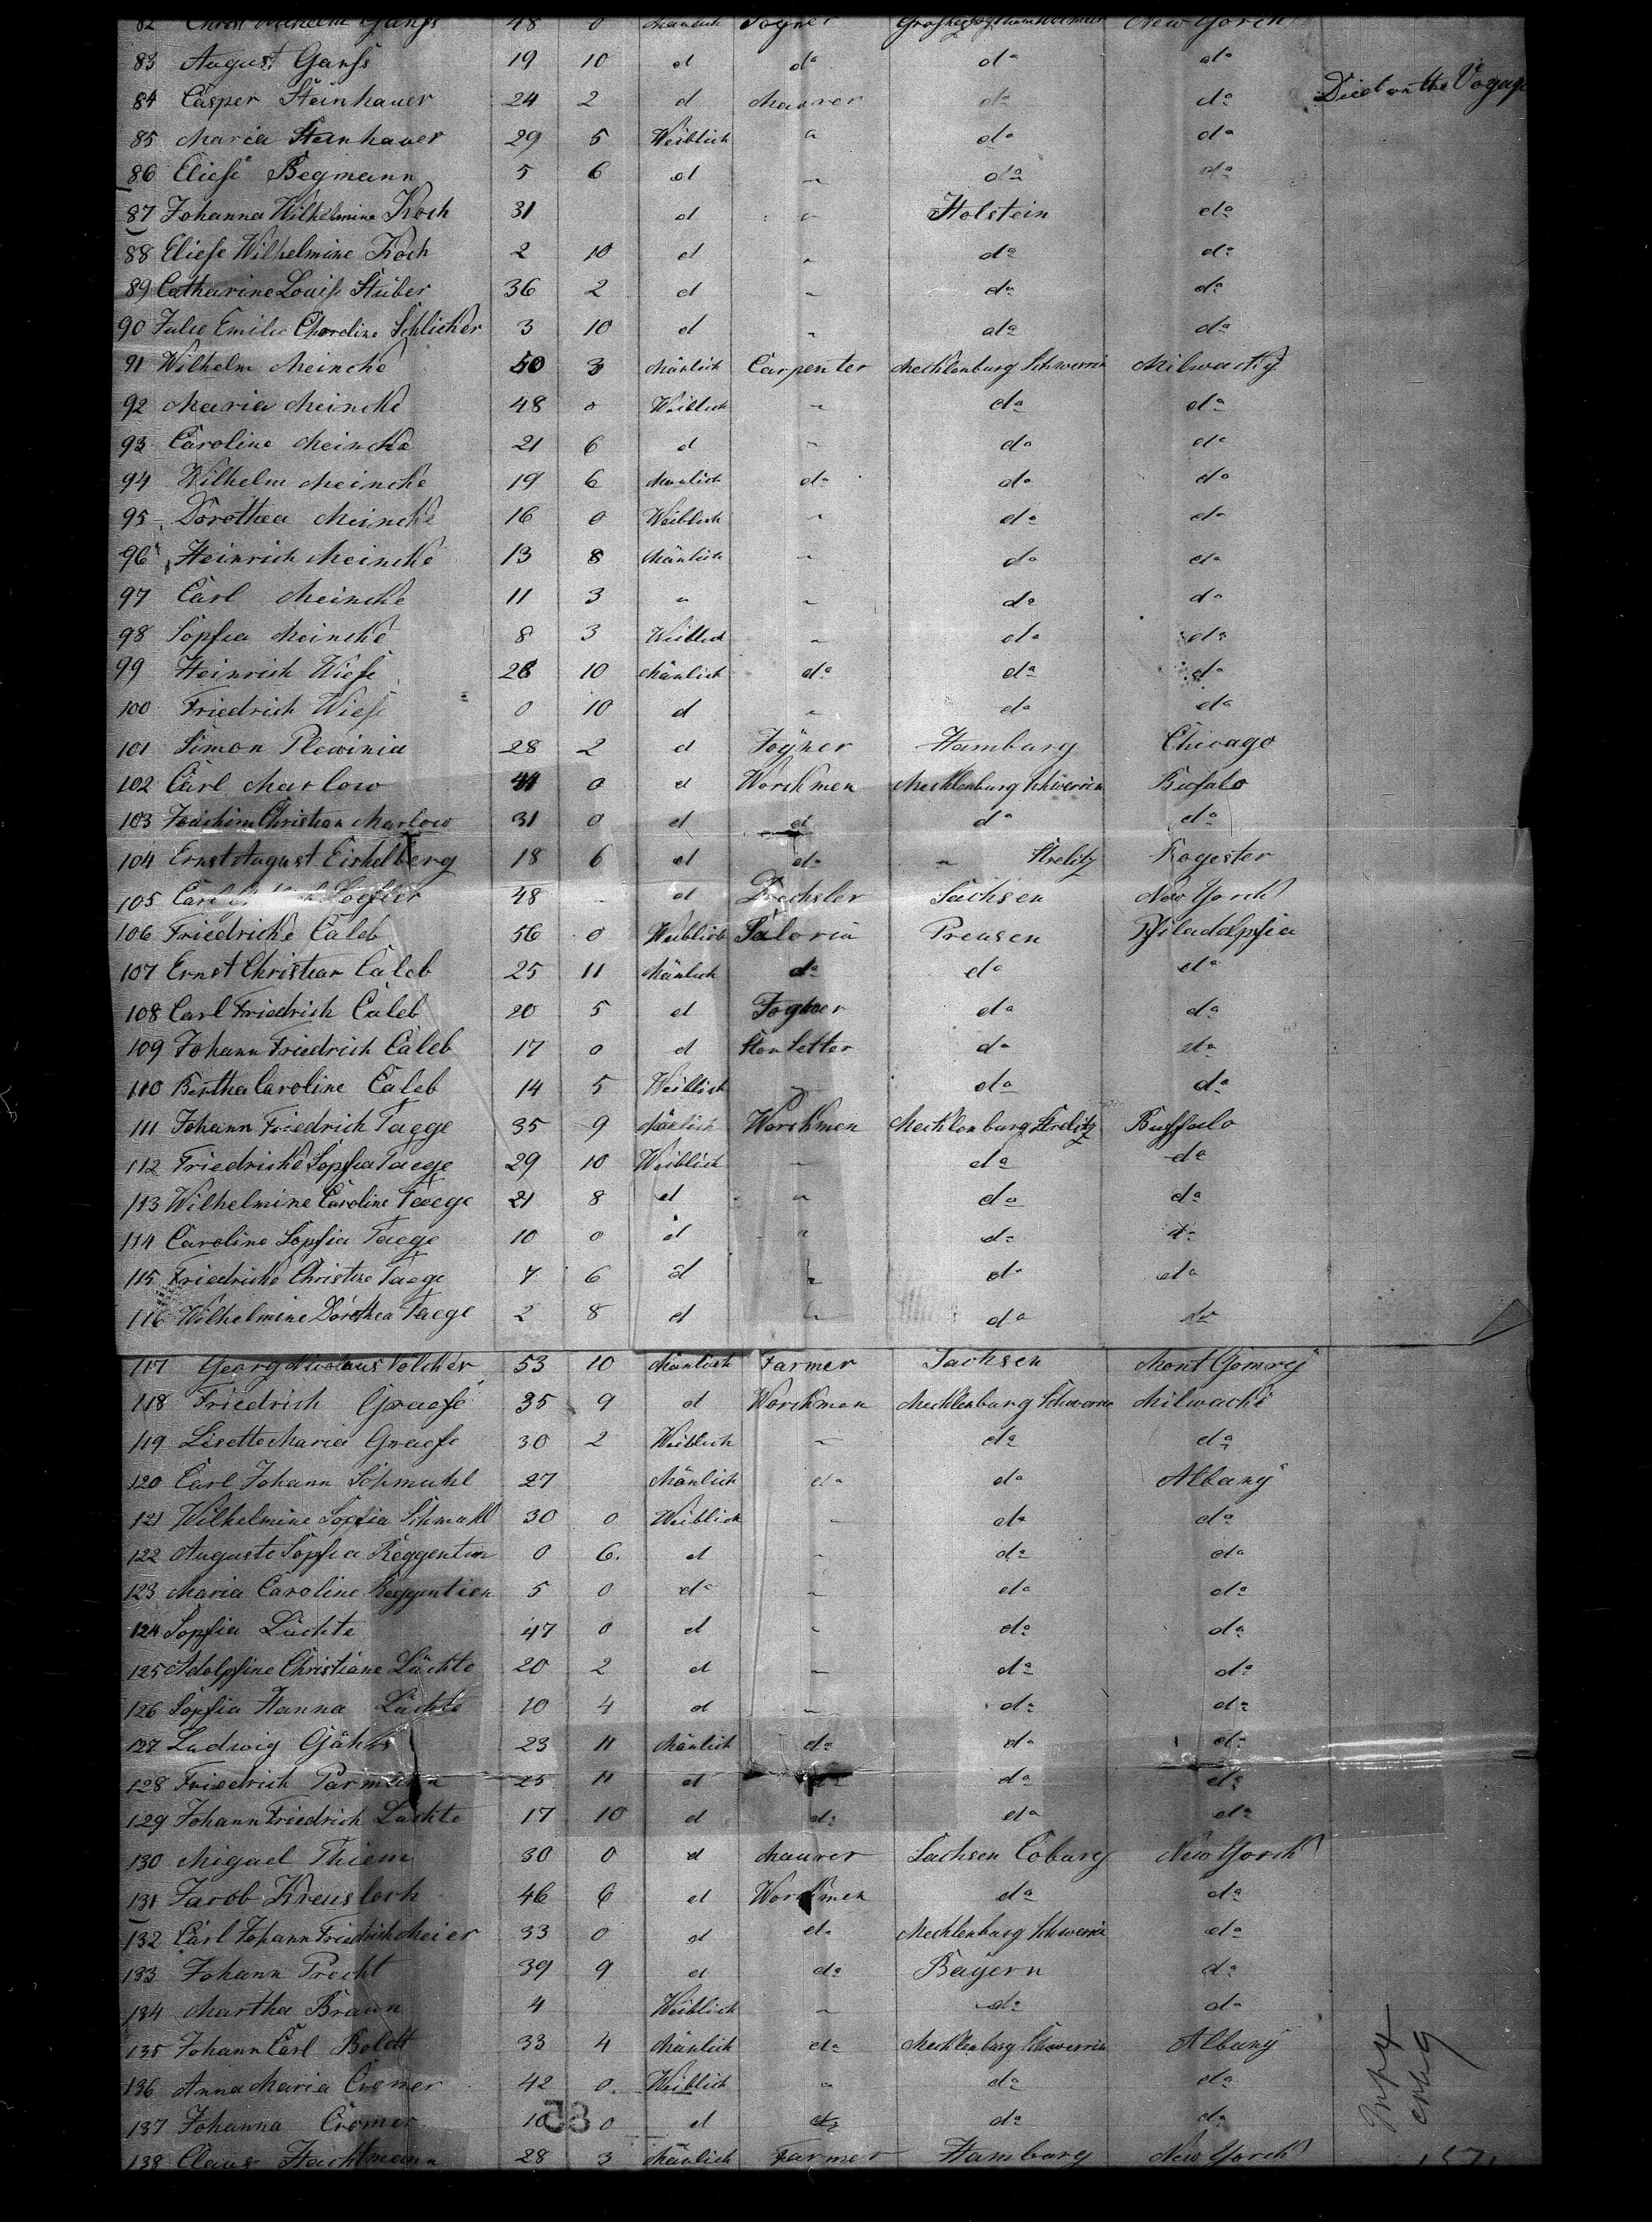 82 Christ Wilhelm Ganfs 48 0 Mänlich Togner New Yorck
83 August Ganfs 19 10 d do do do
84 Casper Steinhauer 24 2 d Maurer do do Died on the Voyage
85 Maria Steinhauer 29 5 Weiblich " do do
86 Eliese Begmann 5 6 d " do do
87 Johanna Wilhelmine Koch 31 d " Holstein do
88 Eliese Wilhelmine Koch 2 10 d " do do
89 Catharine Louise Stuber 36 2 d " do do
90 Julie Emilie Charoline Schlicker 3 10 d " do do
91 Wilhelm Meincke 50 3 Mänlich Carpenter Mecklenburg Schwerin Milwacky
92 Maria Meincke 48 0 Weiblich " do do
93 Caroline Meincke 21 6 d " do do
94 Wilhelm Meincke 19 6 Mänlich do do do
95 Dorothea Meincke 16 0 Weiblich " do do
96 Heinrich Meincke 13 8 Mänlich " do do
97 Carl Meincke 11 3 " " do do
98 Sopfia Meincke 8 3 Weiblich " do do
99 Heinrich Wiese 28 10 Mänlich do do do
100 Friedrich Wiese 0 10 d " do do
101 Simon Plewinia 28 2 d Togner Hamburg Chicago
102 Carl Marlow 41 0 d Worckmen Mecklenburg Schwerin Bufalo
103 Joachim Christian Marlow 31 0 d d do do
104 Ernst August Eickelberg 18 6 d do " Strelitz Rogester
105 Carl Loefler 48 - d Drechsler Sachsen New Yorck
106 Friedricke Caleb 56 0 Weiblich Taloria Preusen Pfiladelpfia
107 Ernst Christian Caleb 25 11 Mänlich do do do
108 Carl Friedrich Caleb 20 5 d Togner do do
109 Johann Friedrich Caleb 17 0 d Stonsetter do do
110 Bertha Caroline Caleb 14 5 Weiblich " do do
111 Johann Friedrich Taege 35 9 Mänlich Worckmen Mecklenburg Strelitz Buffalo
112 Friedricke Sopfia Taege 29 10 Weiblich " do do
113 Wilhelmine Caroline Taege 21 8 d " do do
114 Caroline Sopfia Taege 10 0 d " do do
115 Friedricke Christine Taege 7 6 d " do do
116 Wilhelmine Dorothea Taege 2 8 d " do do
117 Georg Nicolaus Völcker 53 10 Mänlich Farmer Sachsen Mont Gomry
118 Friedrich Graefe 35 9 d Worckmen Mecklenburg Schwerin Milwacki
119 Lisette Maria Graefe 30 2 Weiblich " do do
120 Carl Johann Schmahl 27 Mänlich do do Albany
121 Wilhelmine Sopfia Schmahl 30 0 Weiblich " do do
122 Auguste Sopfia Reggentien 0 6 d " do do
123 Maria Caroline Reggentien 5 0 do " do do
124 Sopfia Lüchte 47 0 d " do do
125 Adolpfine Christiane Lüchte 20 2 d " do do
126 Sopfia Hanna Lüchte 10 4 d " do do
127 Ludwig Gähts 23 11 Mänlich do do do
128 Friedrich Parmann 25 11 d do do do
129 Johann Friedrich Lüchte 17 10 d do do do
130 Migael Thiem 30 0 d Maurer Sachsen Coburg New Yorck
131 Jacob Kreusloch 46 6 d Worckmen do do
132 Carl Johann Friedrich Meier 33 0 d do Mecklenburg Schwerin do
133 Johann Precht 39 9 d do Bayern do
134 Martha Braun 4 Weiblich " do do
135 Johann Carl Boldt 33 4 Mänlich do Mecklenburg Schwerin Albany
136 Anna Maria Cromer 42 0 Weiblich " do do
137 Johanna Cromer 10 0 d do do do
58
138 Claus Hachtmann 28 3 Mänlich Farmer Hamburg New Yorck